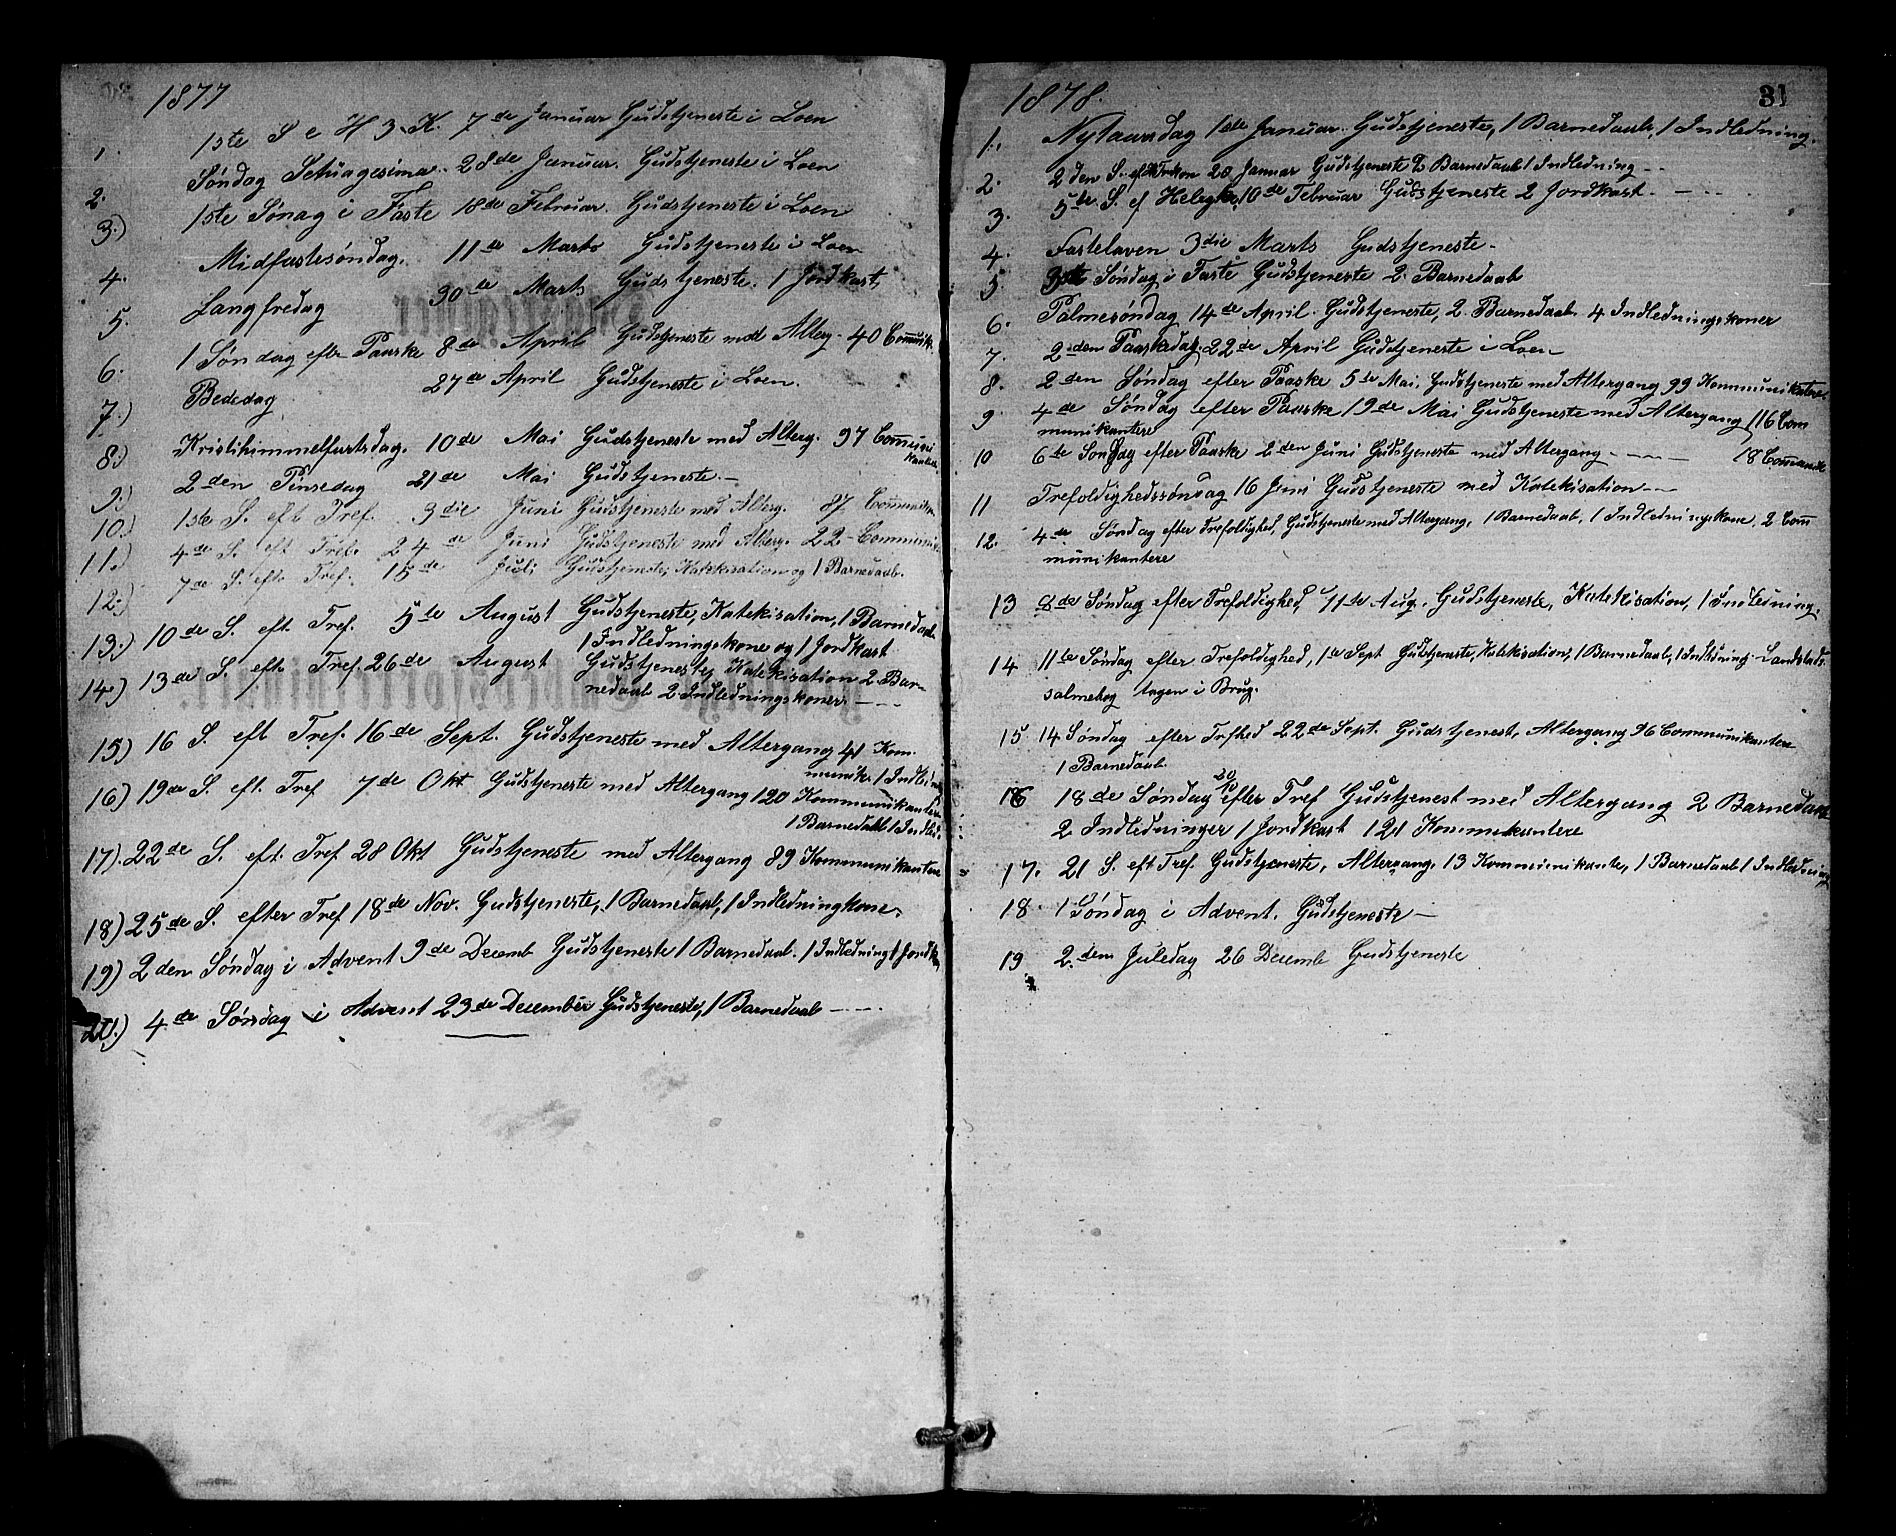 1877
1. 1ste S e H 3 K. 7de Januar Gudstjeneste i Loen
2. Søndag Setuagesima. 28de Januar. Gudstjeneste i Loen
3.) 1ste Sønag i Faste 18de Februar. Gudstjeneste i Loen
4. Midfastesøndag. 11te Marts Gudstjeneste i Loen
5. Langfredag 30de Marts Gudstjeneste. 1 Jordkast
6. 1 Søndag efter Paaske 8de April Gudstjeneste med Alterg. 40 Commnik.
7.) Bededag 27de April Gudstjeneste i Loen.
8.) Kristihimmelfartsdag. 10de Mai Gudstjeneste med Alterg. 97 Communi
kantere
9.) 2den Pinsedag 21de Mai Gudstjeneste.-
10.) 1ste S. eft Tref. 3die Juni Gudstjeneste med Alterg. 87. Communik.
11.) 4de S. eft. Tref. 24de Juni Gudstjeneste med Alterg. 22- Communik.
12.) 7de S. eft. Tref. 15de Juli Gudstjeneste, Katekisation og 1 Barnedaab.
13.) 10de S. eft. Tref. 5te August Gudstjeneste, Katekisation, 1 Barnedaab.
1 Indledningskone og 1 Jordkast
14.) 13de S. eft. Tref. 26de August Gudstjeneste, Katekisation 2 Bar-
nedaab 2 Indledningskoner. - - -
15) 16 S. eft Tref. 16de Sept. Gudstjeneste med Altergang 41 Kom.
munik. 1 Indledn
16) 19de S. eft. Tref 7de Okt Gudstjeneste med Altergang 120 Kommunikantere
1 Barnedaab 1 Indled.
17). 22de S. eft. Tref 28 Okt Gudstjeneste med Altergang 89 Kommunikantere
18) 25de S. efter Tref 18de Nov. Gudstjeneste, 1 Barnedaab, 1 Indledningkone.
19) 2den Søndag i Advent 9de Decemb Gudstjeneste 1 Barnedaab. 1 Indledning 1 Jordk
20.) 4de Søndag i Advent 23de December Gudstjeneste, 1 Barnedaab - - - -
31
1878.
1., Nytaarsdag 1ste Januar. Gudstjeneste, 1 Barnedaab, 1 Indledning.
2. 2den S. eft 20 Januar Gudstjeneste 2 Barnedaab 1 Indledning - -
3. 5te S. ef Heligk. 10de Februar Gudstjeneste 2 Jordkast. - - -
4. Fastelaven 3die Marts Gudstjeneste-
5. Søndag i Faste Gudstjeneste 2. Barnedaab
6. Palmesøndag 14de April. Gudstjeneste, 2. Barnedaab 4 Indledningskoner
7. 2den Paaskedag. 22de April Gudstjeneste i Loen
8. 2den Søndag efter Paaske 5te Mai, Gudstjeneste med Altergang 99 Kommunikatere
9. 4de Søndag efter Paaske 19de Mai Gudstjeneste med Altergang 116 Com
munikantere
10 6te Sondag efter Paaske 2den Juni Gudstjeneste med Altergang - - - - 18
11 Trefoldighedssøndag 16 Juni Gudstjeneste med Katekisation - - -
12. 4de Søndag efter Trefoldighed, Gudstjeneste med Altergang, 1 Barnedaab, 1 Indledningskone, 2 Com
munikantere
13 8de Søndag efter Trefoldighed 11te Aug. Gudstjeneste, Katekisation, 1 Indledning.
14 11te Søndag efter Trefoldighed, 1te Sept Gudstjeneste, Katekisation, 1 Barnedaab, 1 Indledning. Landstads.
salmebog tagen i Brug.
15 14 Søndag efter Trfhed 22de Sept. Gudstjenest, Altergang 96 Communikantere
1 Barnedaab.
16 18de Søndag efter Tref Gudstjenest med Altergang 2 Barnedaab
2 Indledninger 1 Jordkast 121 Kommekantere
17. 21 S. eft Tref. Gudstjeneste, Altergang. 13 Kommunikante, 1 Barnedaab 1 Indledning
18. 1 Søndag i Advent. Gudstjeneste -
19 2.den Juledag 26 Decemb Gudstjeneste